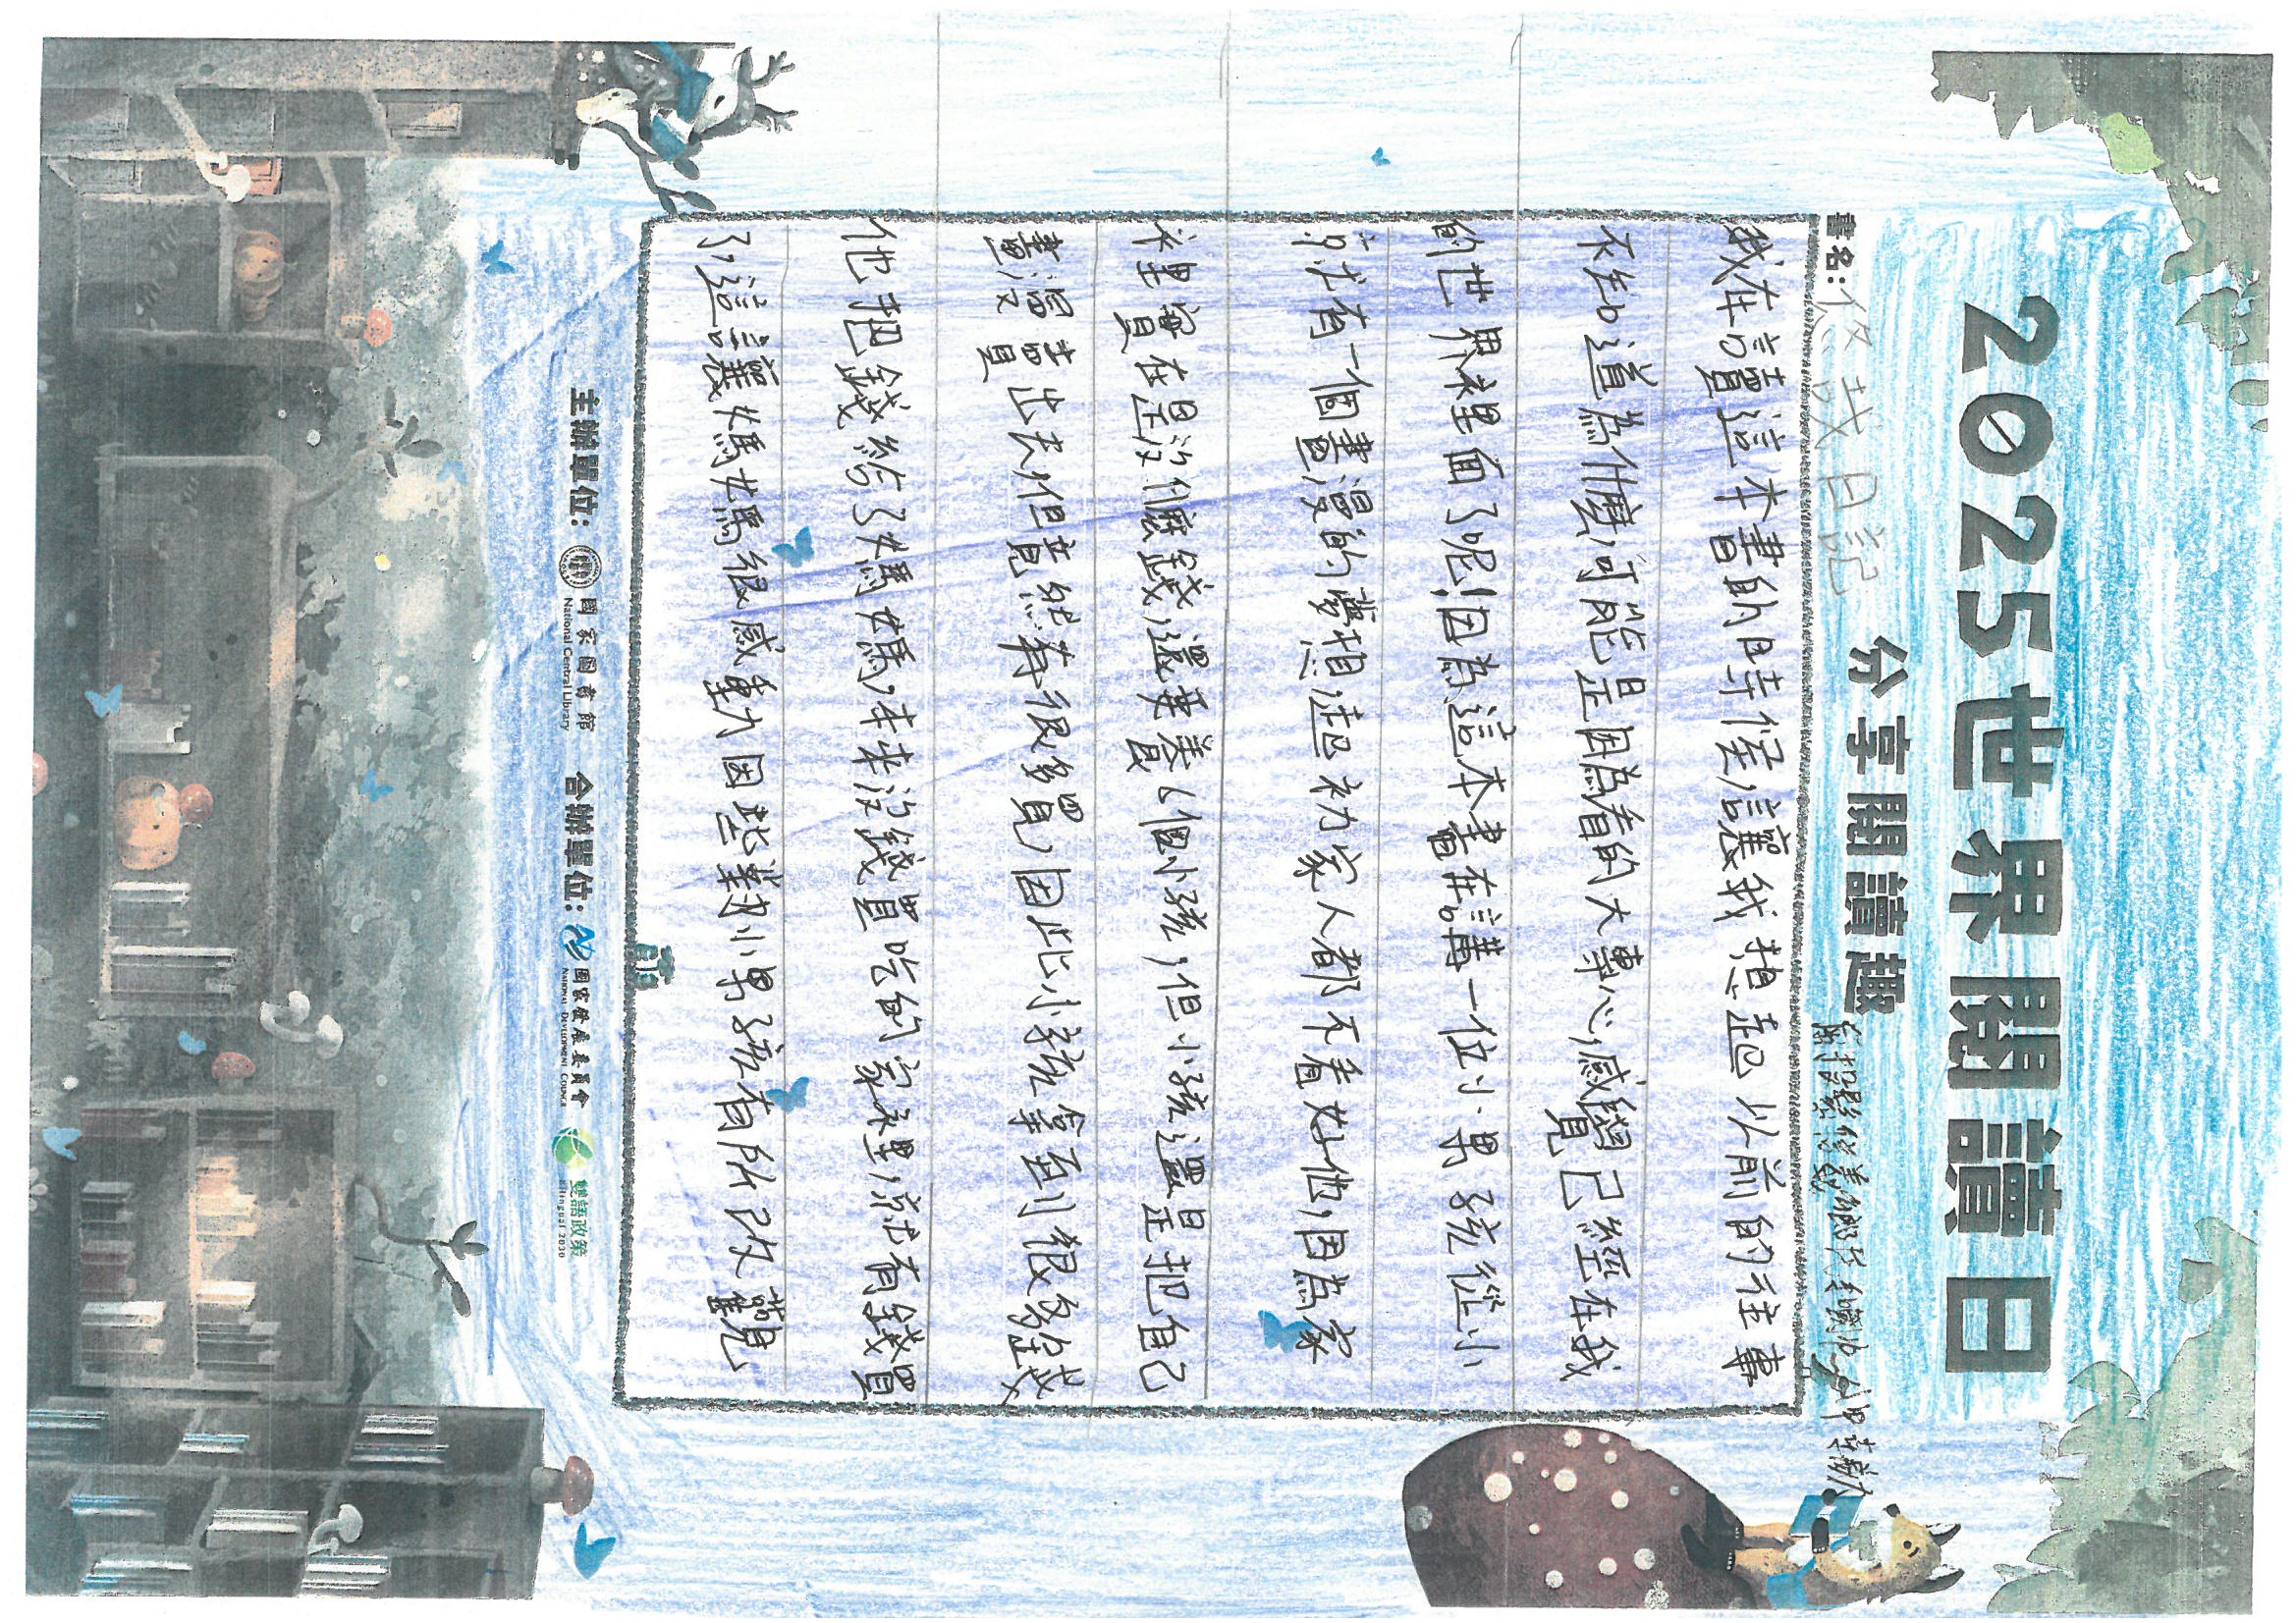 2025世界閱讀日
分享閱讀趣
書名：悠哉日記
我在讀這本書的時候,讓我想起以前的往事
不知道為什麼,可能是因為看的太專心,感覺已經在我
的世界裡面了呢!因為這本書在講一位小男孩從小
就有一個畫漫的夢想,起初家人都不看好他,因為家
裡實在是沒什麼錢,還要養個小孩,但小孩還是把自己
畫漫畫賣出去但竟然有很多買,因此小孩拿到很多錢
他把錢給了媽媽,本來沒錢買吃的家裡,就有錢買
了,這讓媽媽很感動因此對小男孩有所改觀
主辦單位：國家圖書館
National Central Library
合辦單位：國家發展委員會
National Development Council
雙語政策
Bilingual 2030